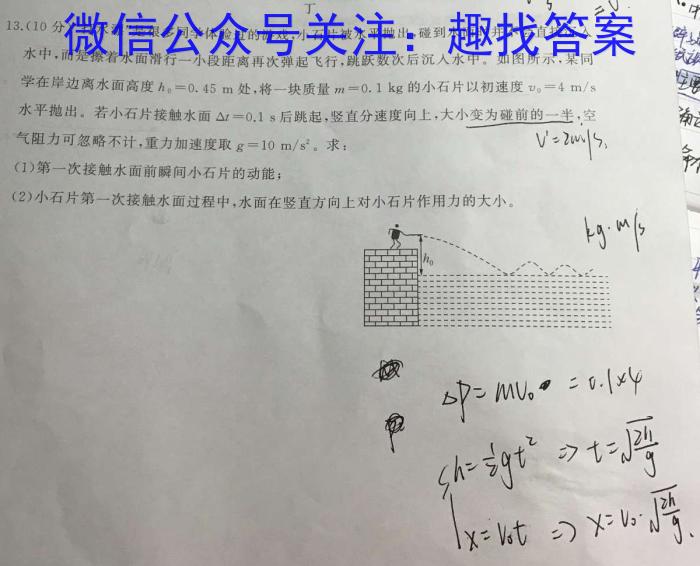 丁
微信公众号关注：趣找答案
13.(10分 很多同学体验过的游戏,小石片被水平抛出,碰到水面 并不 直接 入
水中,而是擦着水面滑行一小段距离再次弹起飞行,跳跃数次后沉入水中。如图所示,某同
学在岸边离水面高度 h₀=0.45 m 处,将一块质量 m=0.1 kg 的小石片以初速度 v₀=4 m/s
水平抛出。若小石片接触水面 Δt=0.1 s 后跳起,竖直分速度向上,大小变为碰前的一半,空
气阻力可忽略不计,重力加速度取 g=10 m/s²。求:
V'=2m/s.
(1)第一次接触水面前瞬间小石片的动能;
(2)小石片第一次接触水面过程中,水面在竖直方向上对小石片作用力的大小。
kg·m/s
h₀
ΔP=mv₀ =0.1×4
h=½gt² ⇒ t=√2h/g
x=v₀t ⇒ x=v₀·√2h/g